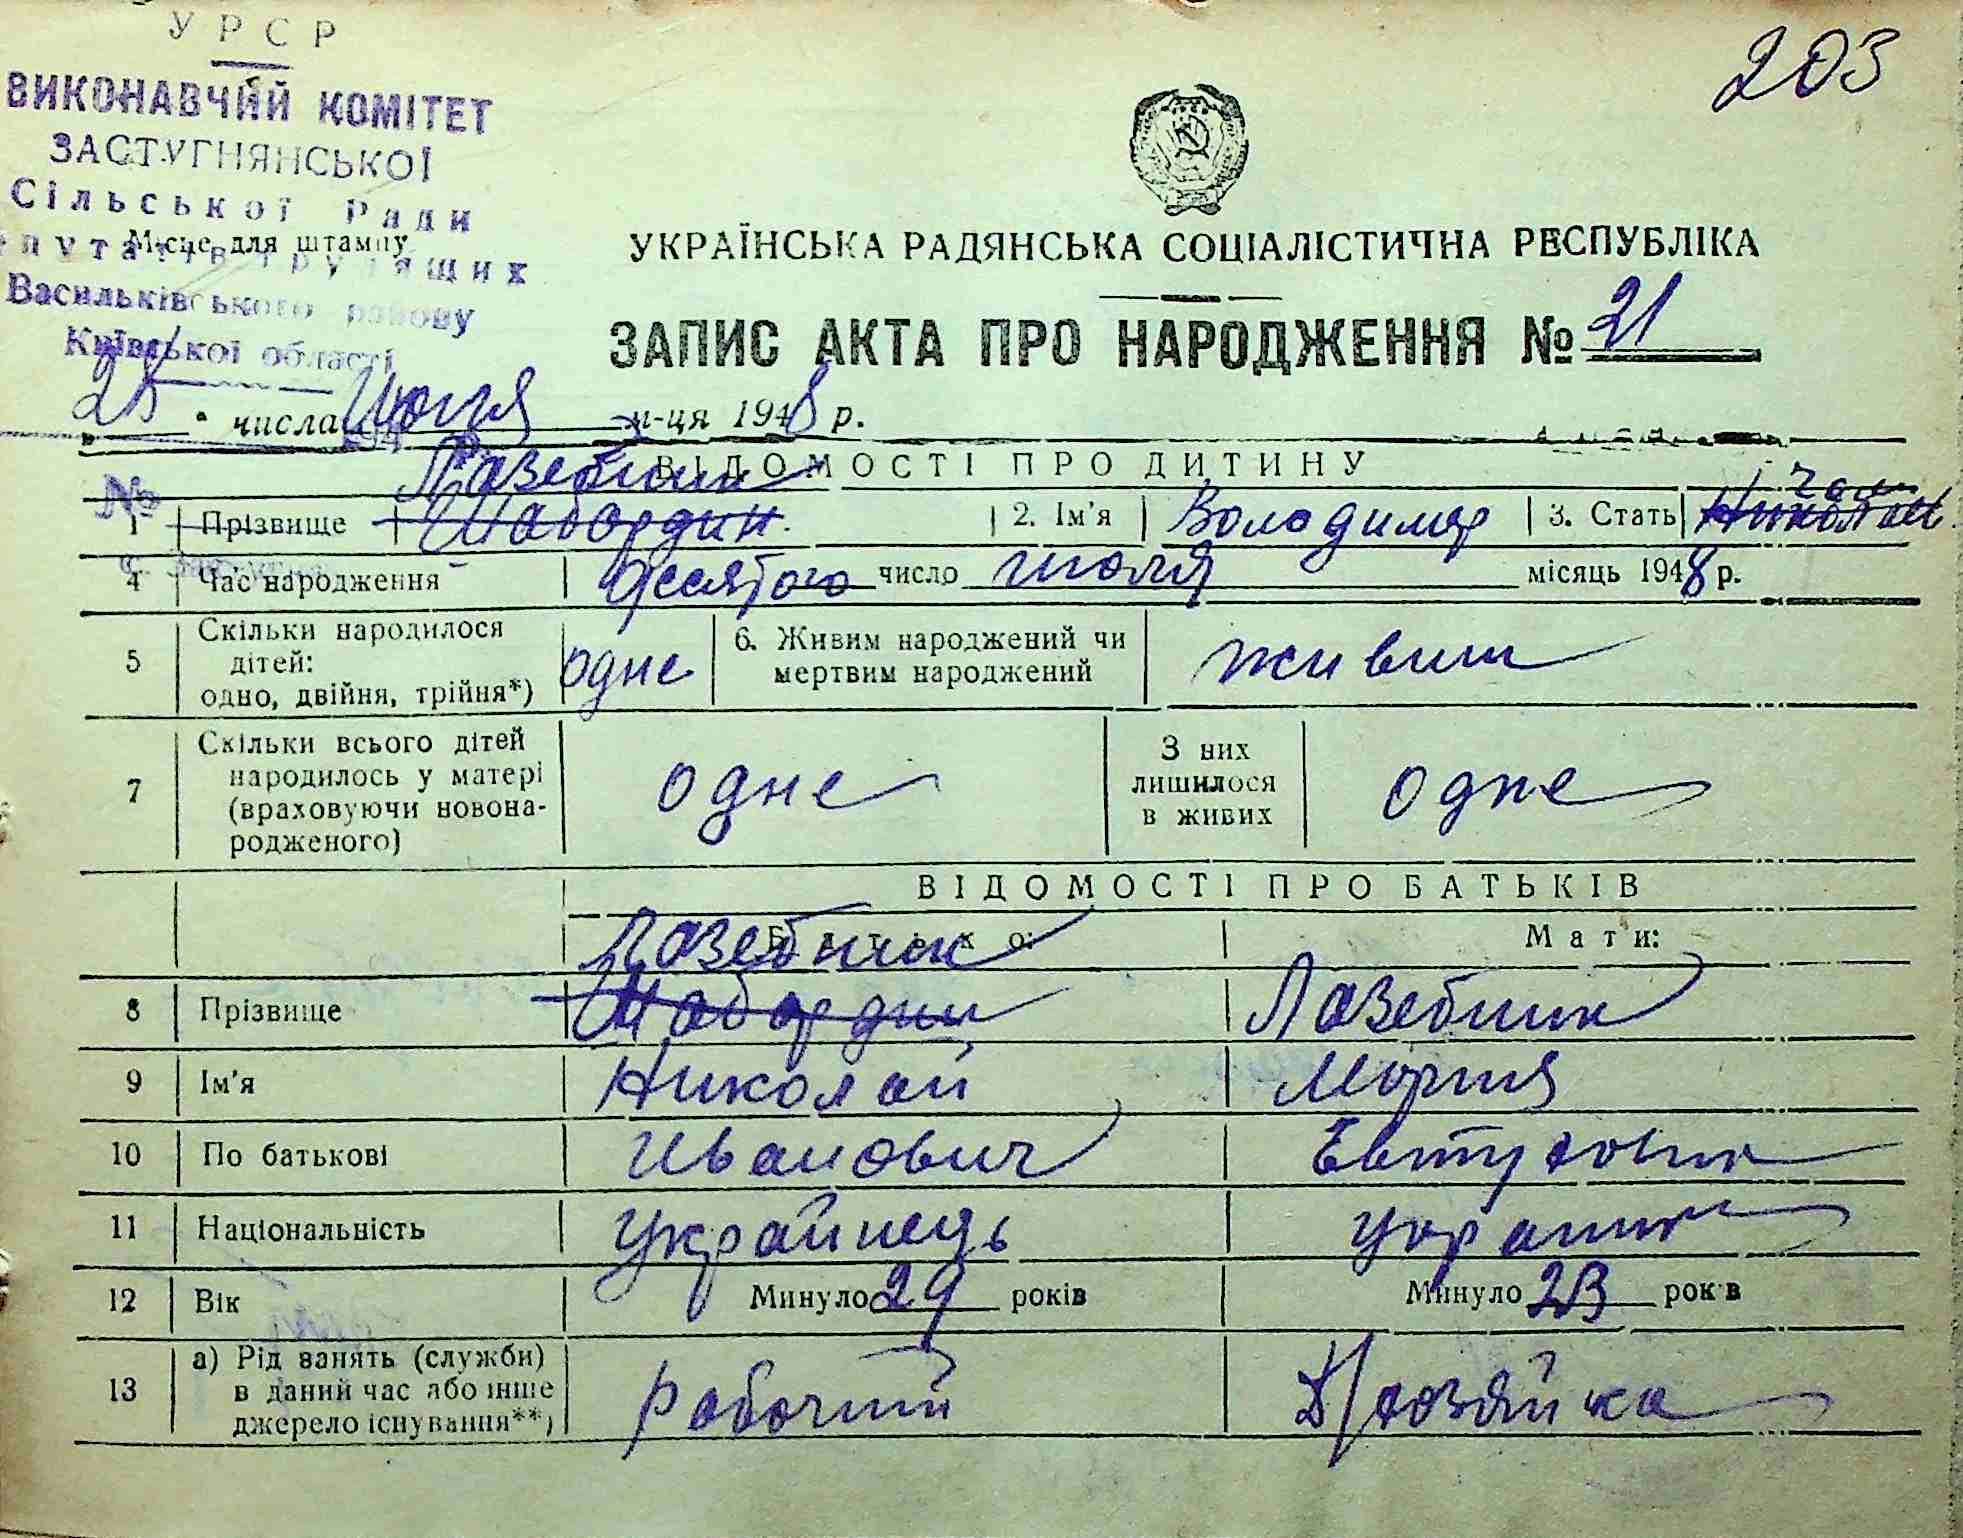 УРСР
203
ВИКОНАВЧИЙ КОМІТЕТ
ЗАСТУГНЯНСЬКОЇ
Сільської Ради
Місце для штампу
Васильківського району
Київської області
УКРАЇНСЬКА РАДЯНСЬКА СОЦІАЛІСТИЧНА РЕСПУБЛІКА
ЗАПИС АКТА ПРО НАРОДЖЕННЯ № 21
25 числа Июля м-ця 1948 р.
ВІДОМОСТІ ПРО ДИТИНУ
Лазебник
№
1 Прізвище Шабардин 2. Ім'я Володимер 3. Стать чол
4 Час народження десятого число июля місяць 1948 р.
5 Скільки народилося дітей: одно, двійня, трійня*) одне 6. Живим народжений чи мертвим народжений живим
7 Скільки всього дітей народилось у матері (враховуючи новонародженого) одне З них лишилося в живих одне
ВІДОМОСТІ ПРО БАТЬКІВ
Батько: Мати:
Лазебник
8 Прізвище Шабардин Лазебник
9 Ім'я Николай Мария
10 По батькові Иванович
11 Національність Українець украинк
12 Вік Минуло 29 років Минуло 23 років
13 а) Рід занять (служби) в даний час або інше джерело існування**) Рабочий Д/хозяйка